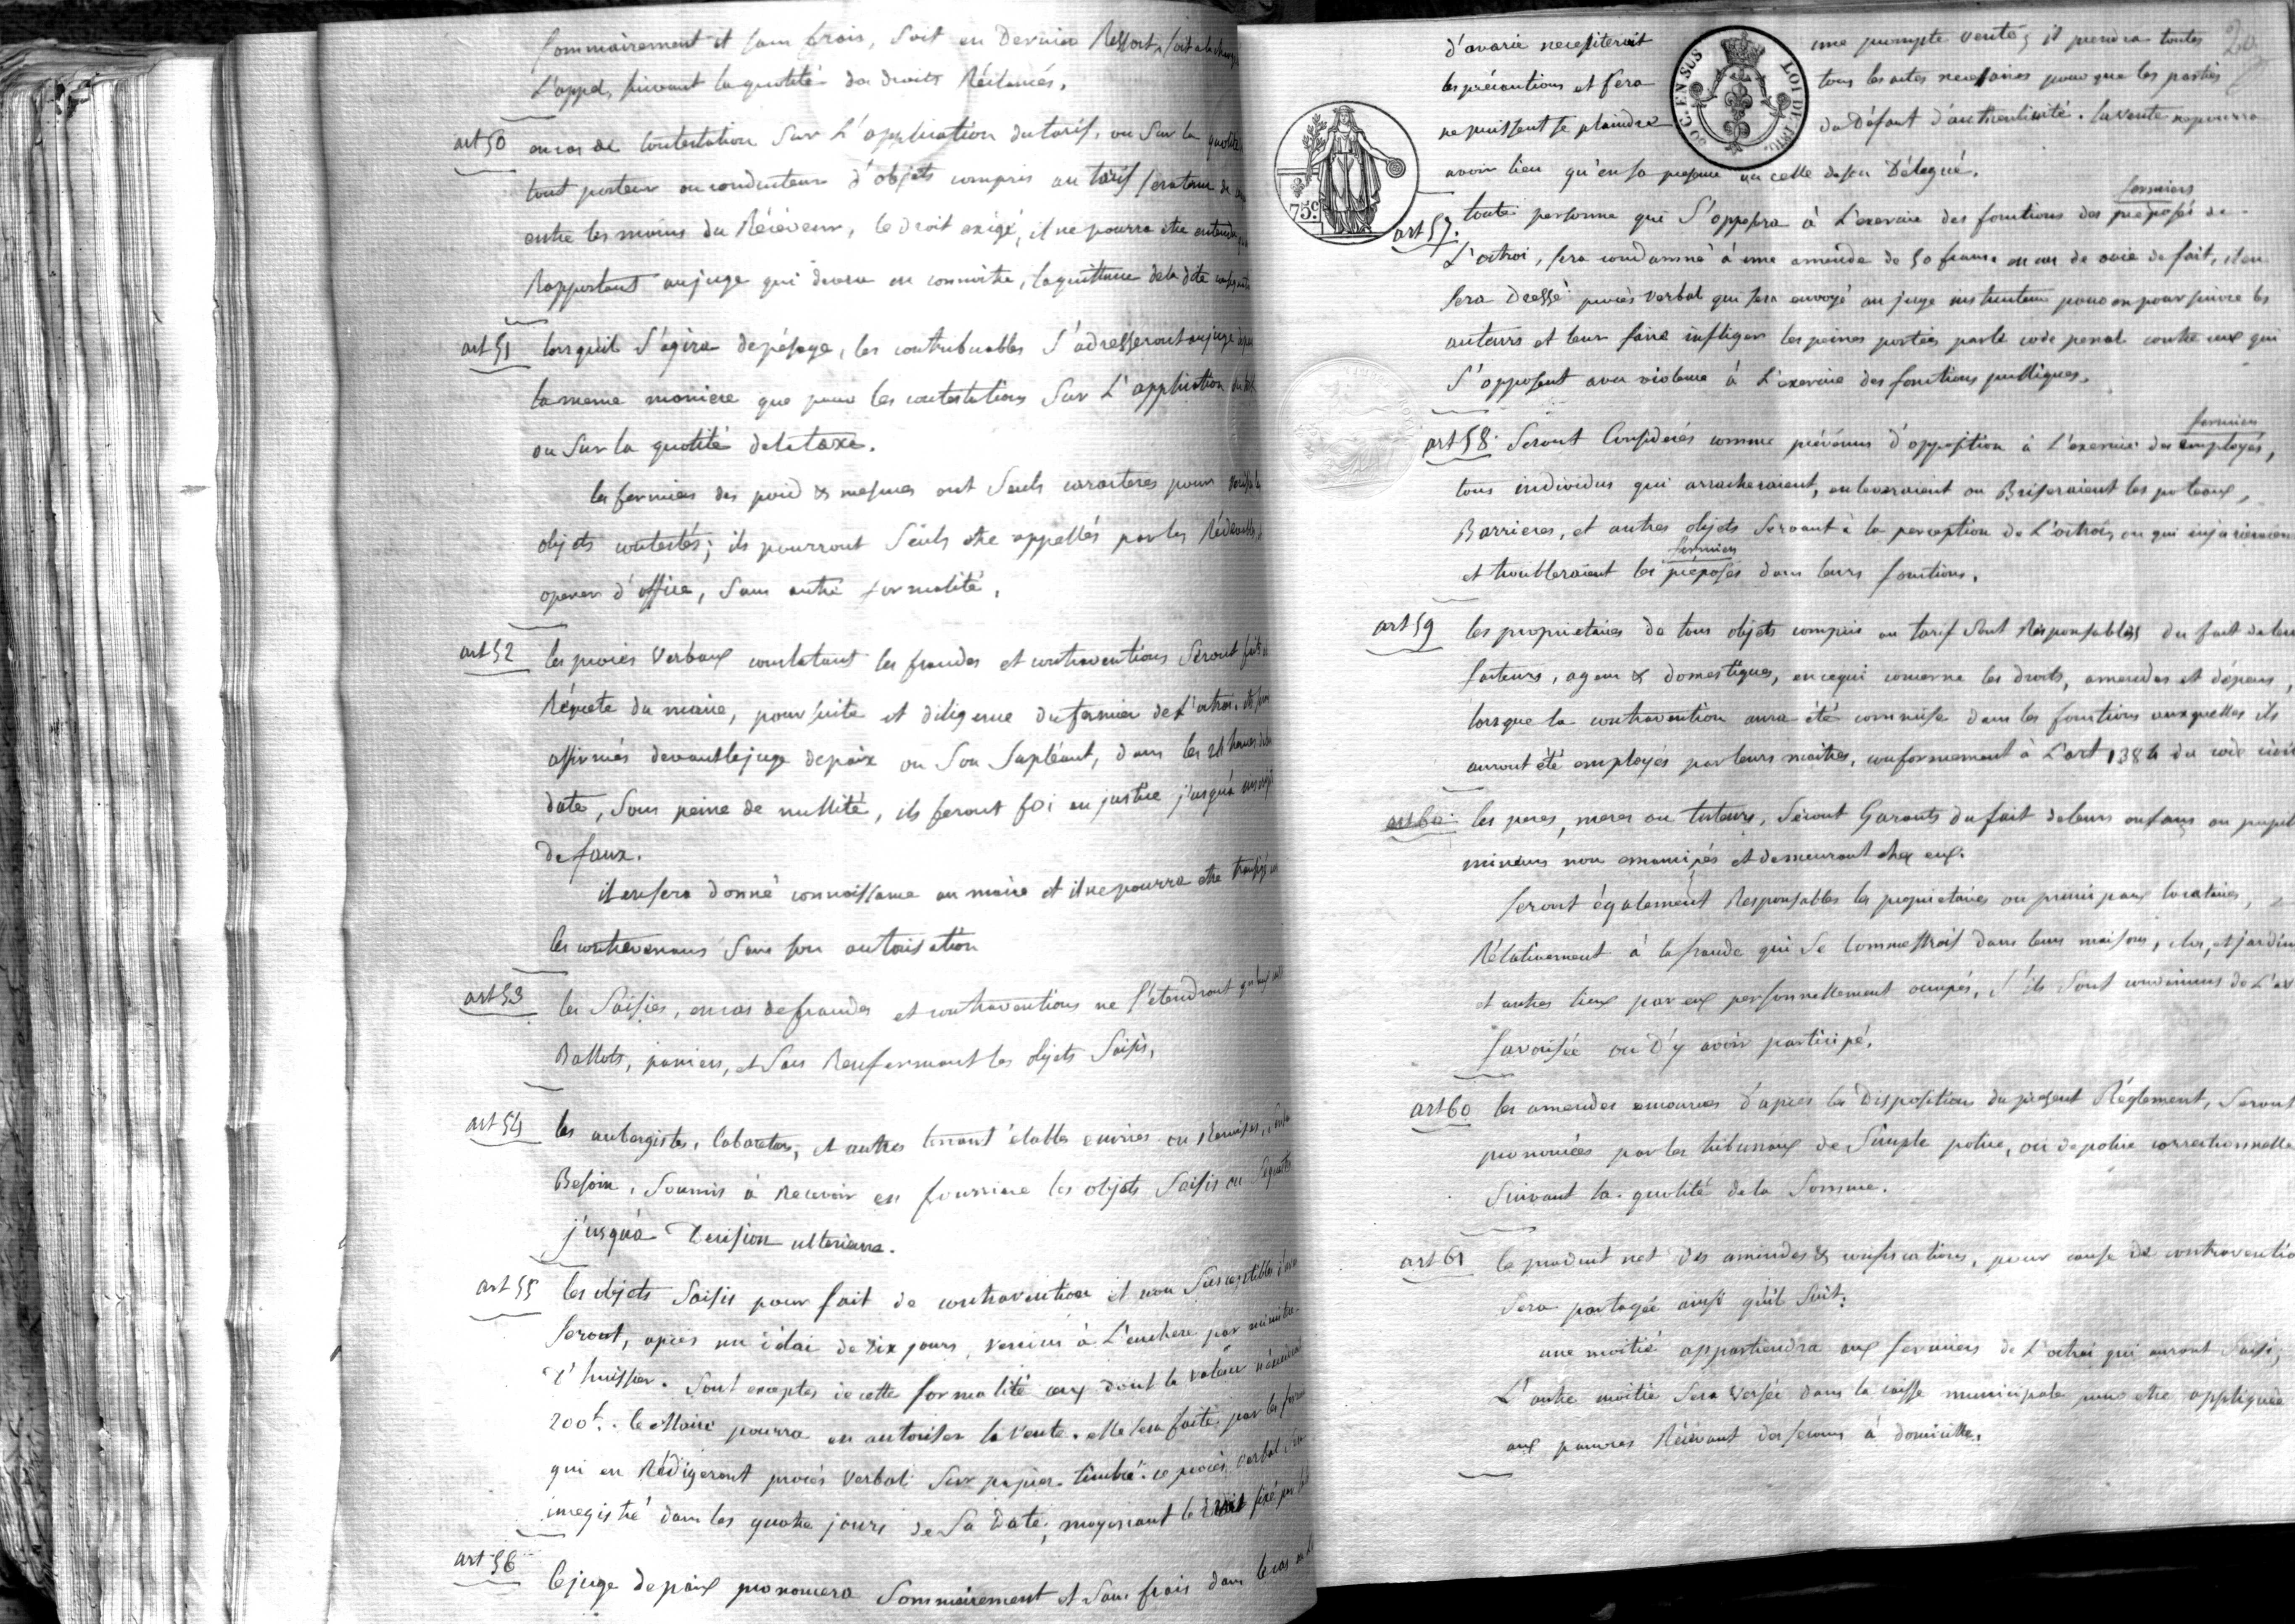 sommairement et sans frais, soit en Dernier Ressort, soit a la charge
L'appel, suivant la quotité des droits Réclamés.
art 50 en cas de Contestation Sur L'application du tarif, ou Sur la quotité
tout porteur ou conducteur d'objets compris au tarif sera tenu de
entre les mains du Réceveur, le droit exigé, il ne pourra etre entendu
Rapportant au juge qui devra en connoitre, la quittance de la dite
art 51 lorsqu'il S'agira de pésage, les contribuables S'adresseront au juge de
la meme maniere que pour les contestations Sur L'application du
ou Sur la quotité de la taxe.
les fermiers des poid & mesures ont Seuls caracteres pour
objets contestés; ils pourront Seuls etre appellés par les Rédevables
operer d'office, Sans autre formalité,
art 52 les procès Verbaux constatant les fraudes et contraventions Seront faits
Réquete du maire, poursuite et diligence du fermier de L'octroi,
affirmés devant le juge de paix ou Son Supléant, dans les 24 heures
date, Sous peine de nullité, ils feront foi en justice jusqu'à
de faux.
il en sera donné connaissance au maire et il ne pourra etre transigé
les contrevenans Sans son autorisation
art 53 les Saisies, en cas de fraudes et contraventions ne S'étendront qu'aux
Ballots, paniers, et Sacs Renfermant les objets Saisis,
art 54 les aubergistes, Cabaretiers, et autres tenant étables ecuries ou Remises,
Besoin, Soumis à Recevoir en fourriere les objets Saisis ou Séquestrés
jusqu'à Décision ulterieure.
art 55 les objets Saisis pour fait de contravention et non Susceptibles
Seront, après un délai de dix jours, vendus à L'enchere par
d'huissier. Sont exceptes de cette formalité ceux dont la valeur
200f. le Maire pourra en autoriser la Vente. elle Sera faite par les
qui en Rédigeront procès Verbal Sur papier timbré. ce procès Verbal,
enregistré dans les quatre jours de Sa Date, moyennant le droit fixé
art 56 le juge de paix prononcera Sommairement et Sans frais dans le cas
20
d'avarie necessiteroit une prompte vente; il prendra toutes
les précautions et fera tous les actes necessaires pour que les parties
ne puissent se plaindre du Défaut d'authenticité. la vente ne pourra
avoir lieu qu'en sa presence ou celle de son Délegué.
C. EN SUS
LOI DE 1816
75c.
TIMBRE ROYAL
fermiers
art 57. toute personne qui S'opposera à L'exercice des fonctions des préposés de
L'octroi, sera condamné à une amende de 50 francs en cas de voie de fait, il en
Sera Dressé procès verbal qui sera envoyé au juge instructeur pour en poursuivre les
auteurs et leur faire infliger les peines portées par le code penal contre ceux qui
S'opposent avec violence à L'exercice des fonctions publiques.
fermiers
art 58. Seront Considerés comme prévenus d'opposition à L'exercice des employés,
tous individus qui arracheraient, enleveraient ou Briseraient les poteaux,
Barrieres, et autres objets Servant à la perception de L'octroi, ou qui injurieraient
fermiers
et troubleraient les préposés dans leurs fonctions.
art 59 les proprietaires de tous objets compris au tarif Sont Résponsables du fait de leurs
facteurs, agens & domestiques, en ce qui concerne les droits, amendes et dépens,
lorsque la contravention aura été commise dans les fonctions auxquelles ils
auront été employés par leurs maitres, conformement à L'art 1384 du code civil
art 60. les peres, meres ou tuteurs, Seront Garants du fait de leurs enfans ou
mineurs non emancipés et demeurant chez eux.
Seront également Responsables les proprietaires ou principaux locataires,
Rélativement à la fraude qui Se Commettroit dans leurs maisons, clos, et jardins
et autres lieux par eux personnellement occupés, S'ils Sont convaincus de L'av
favorisée ou D'y avoir participé.
art 60 les amendes encourues d'après les Dispositions du present Réglement, Seront
prononcées par les tribunaux de Simple police, ou de police correctionnelle
Suivant la quotité de la Somme.
art 61 le produit net des amendes & confiscations, pour cause de contravention
Sera partagée ainsi qu'il Suit:
une moitié appartiendra aux fermiers de L'octroi qui auront Saisi;
L'autre moitié Sera Versée dans la caisse municipale pour etre appliquée
aux pauvres Récévant des Secours à domicille.